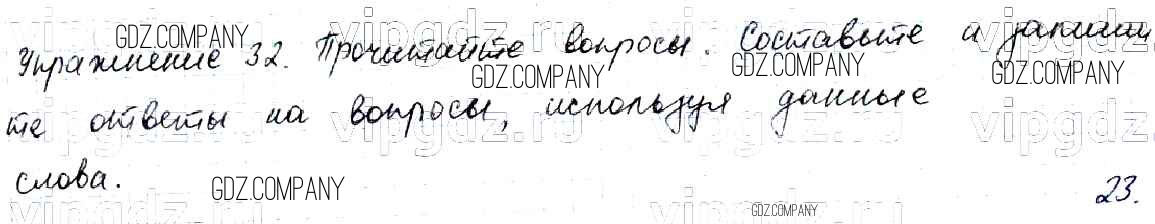 Упражнение 32. Прочитайте вопросы. Составьте и запиши
те ответы на вопросы, используя данные
слова.
23.
GDZ.COMPANY
GDZ.COMPANY
GDZ.COMPANY
GDZ.COMPANY
GDZ.COMPANY
GDZ.COMPANY
vipgdz.ru
vipgdz.ru
vipgdz.ru
vipgdz.ru
vipgdz.ru
vipgdz.ru